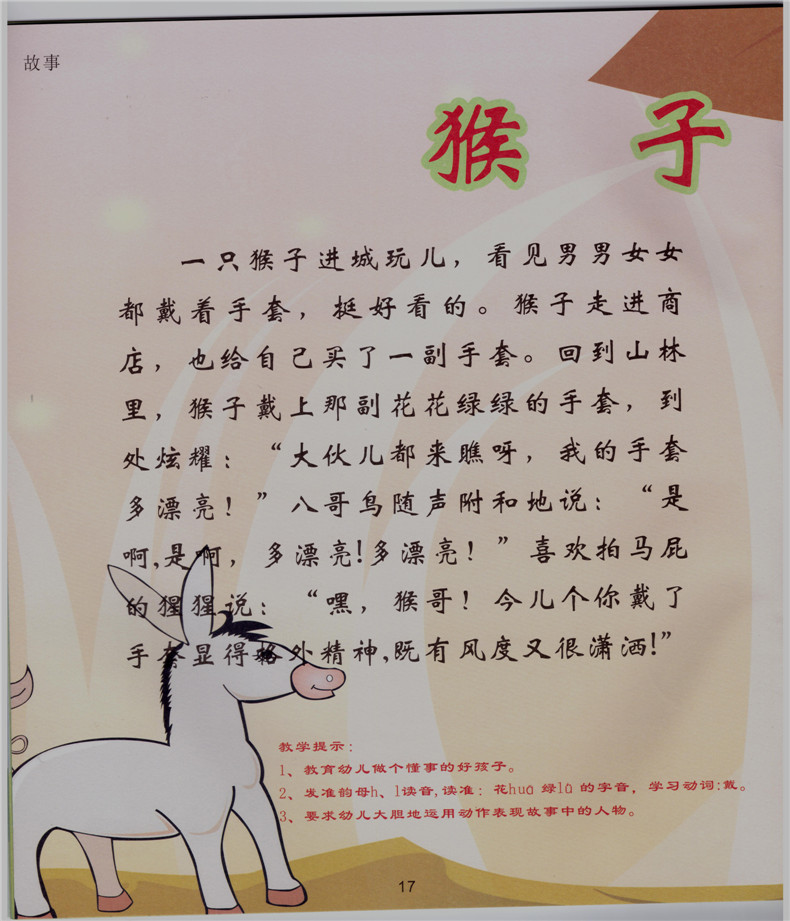 故事
猴 子
一只猴子进城玩儿，看见男男女女
都戴着手套，挺好看的。猴子走进商
店，也给自己买了一副手套。回到山林
里，猴子戴上那副花花绿绿的手套，到
处炫耀：“大伙儿都来瞧呀，我的手套
多漂亮！”八哥鸟随声附和地说：“是
啊,是啊，多漂亮!多漂亮！”喜欢拍马屁
的猩猩说：“嘿，猴哥！今儿个你戴了
手套显得格外精神,既有风度又很潇洒!”
教学提示：
1、教育幼儿做个懂事的好孩子。
2、发准韵母h、l读音,读准：花huɑ 绿lü 的字音，学习动词:戴。
3、要求幼儿大胆地运用动作表现故事中的人物。
17